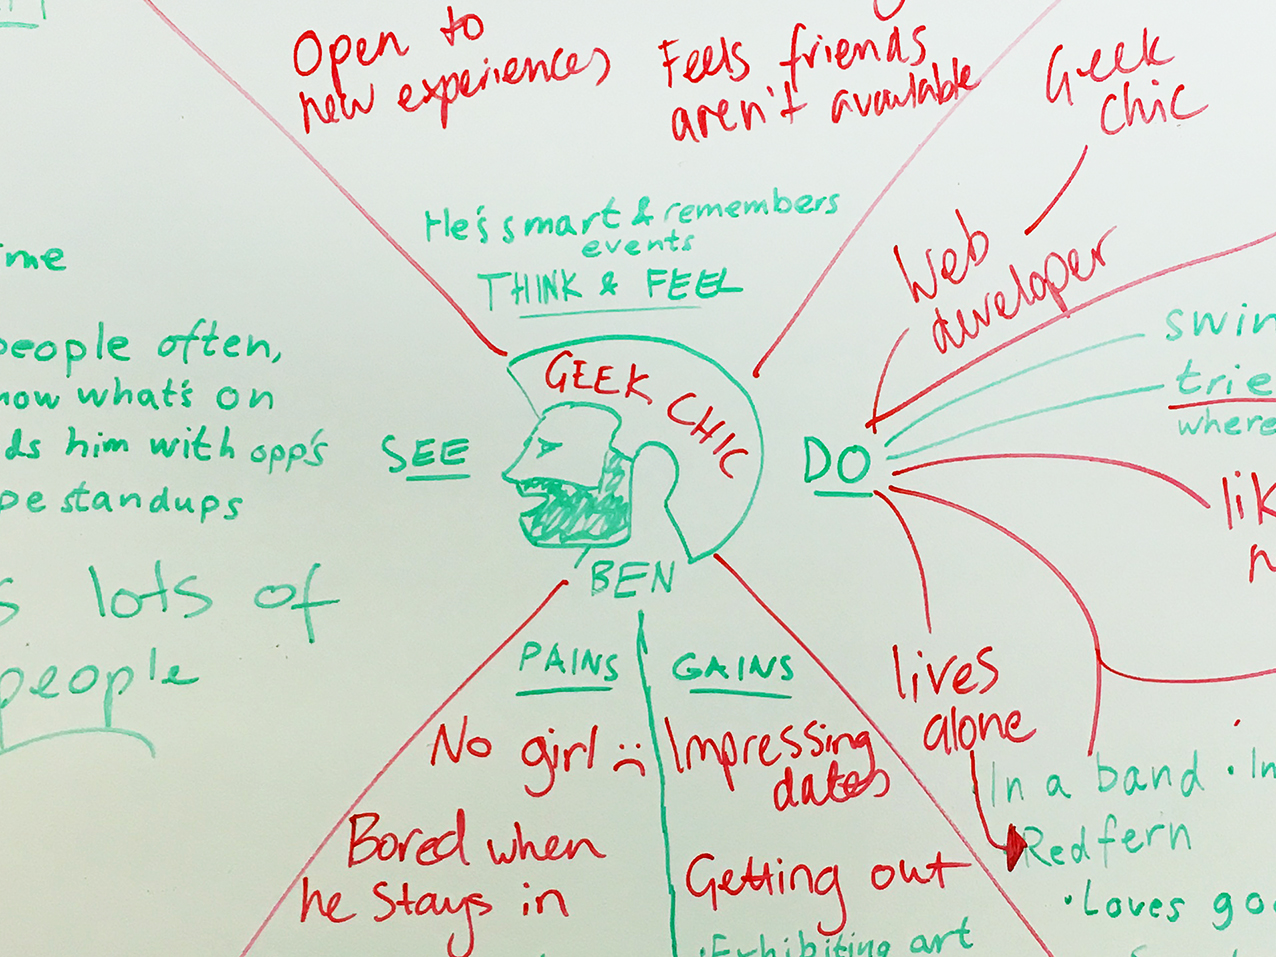 Open to
new experiences
Feels friends
aren't available
Geek
chic
He's smart & remembers
events
THINK & FEEL
Web
developer
me
people often,
now what's on
ds him with opp's
pe standups
s lots of
people
SEE
GEEK CHIC
BEN
DO
swin
trie
where
lik
lives
alone
In a band · In
Redfern
· Loves go
PAINS
No girl :(
Bored when
he stays in
GAINS
Impressing
dates
Getting out
· Exhibiting art